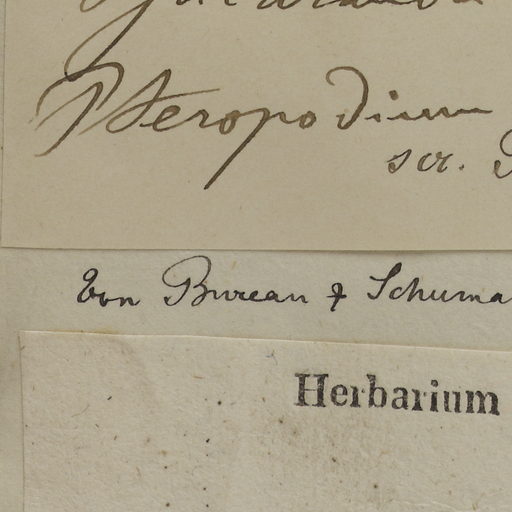 Pteropodium
scr.
Von Bureau & Schuma
Herbarium